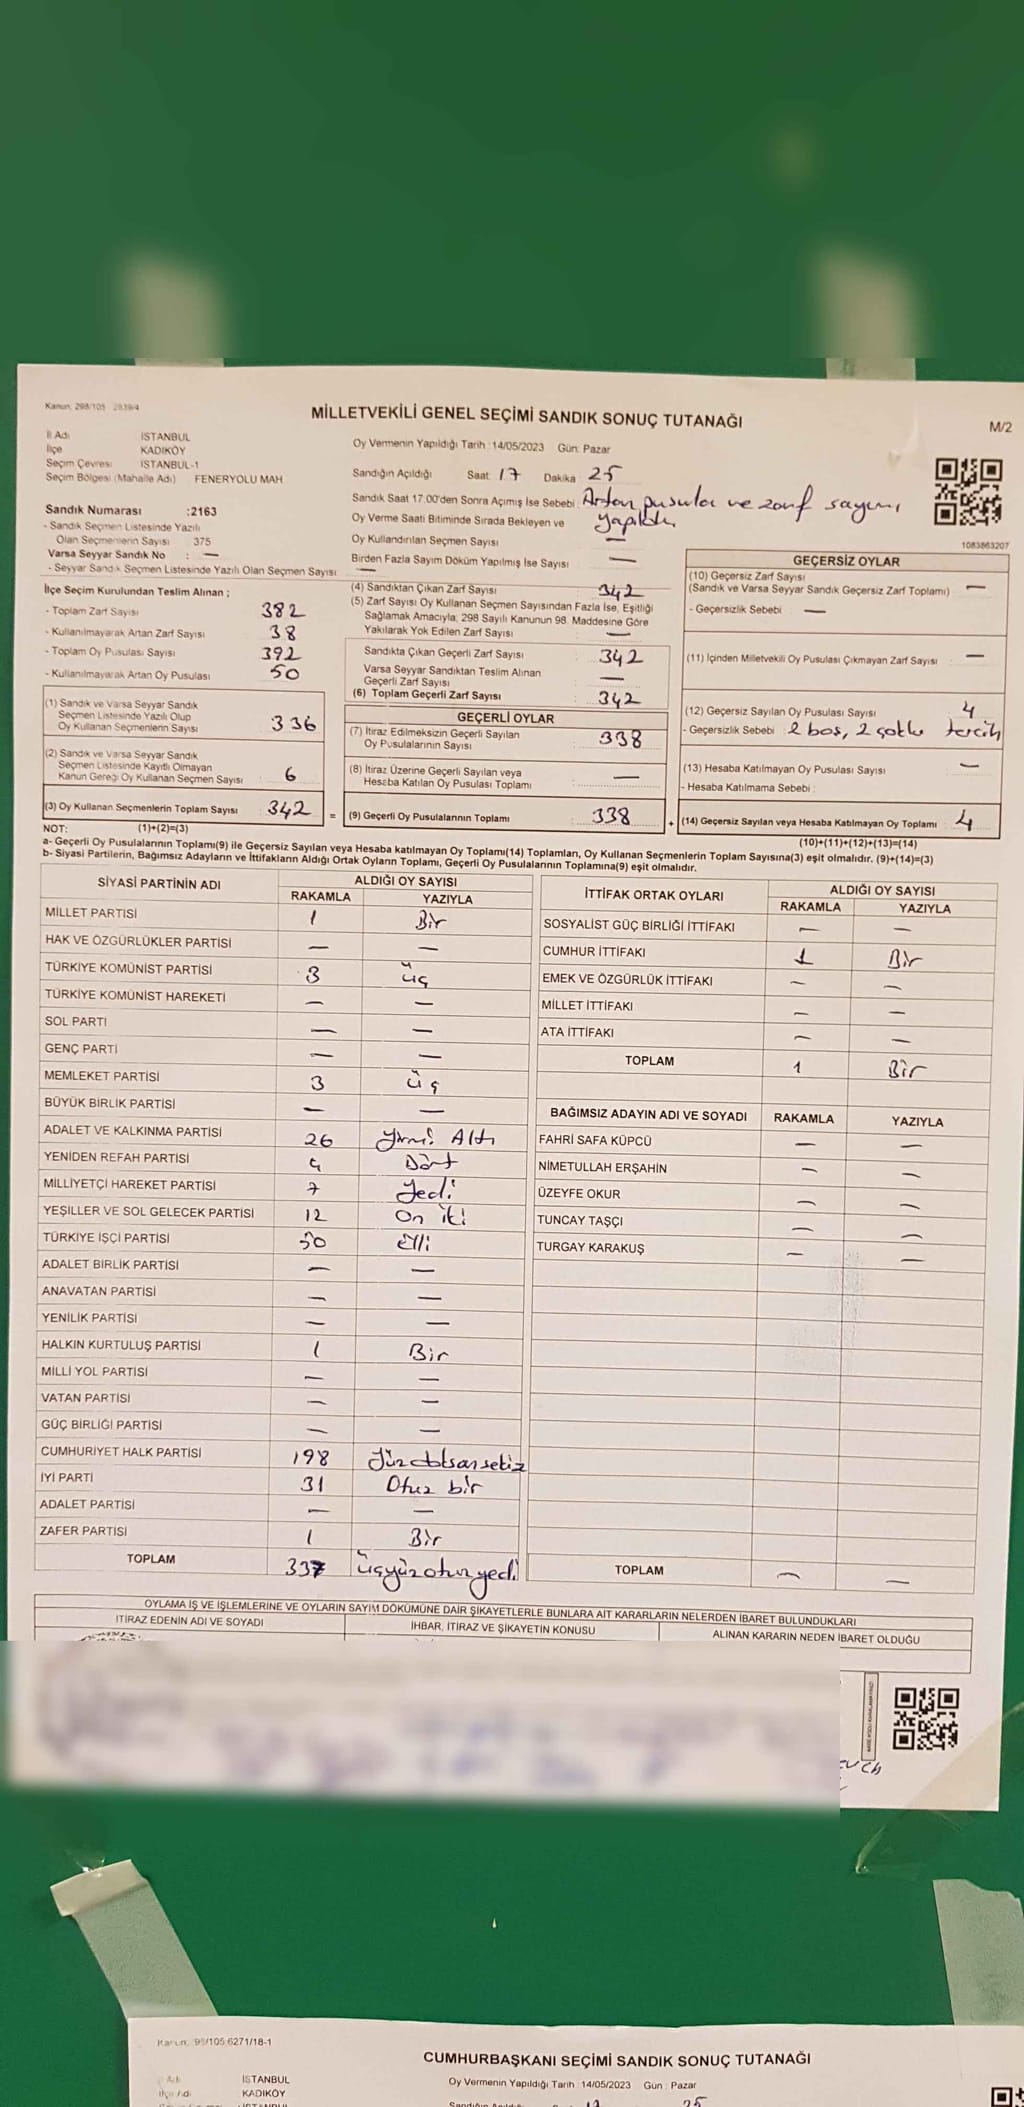 Kanun: 298/105 2839/4
MİLLETVEKİLİ GENEL SEÇİMİ SANDIK SONUÇ TUTANAĞI
M/2
İl Adı İSTANBUL
İlçe KADIKÖY
Seçim Çevresi İSTANBUL-1
Seçim Bölgesi (Mahalle Adı) FENERYOLU MAH
Oy Vermenin Yapıldığı Tarih : 14/05/2023 Gün: Pazar
Sandığın Açıldığı Saat 17 Dakika 25
Sandık Saat 17.00'den Sonra Açımış İse Sebebi Artan pusula ve zarf sayımı
yapıldı
Oy Verme Saati Bitiminde Sırada Bekleyen ve
Oy Kullandırılan Seçmen Sayısı —
Birden Fazla Sayım Döküm Yapılmış İse Sayısı —
1083863207
Sandık Numarası :2163
- Sandık Seçmen Listesinde Yazılı
Olan Seçmenlerin Sayısı 375
Varsa Seyyar Sandık No : —
- Seyyar Sandık Seçmen Listesinde Yazılı Olan Seçmen Sayısı —
İlçe Seçim Kurulundan Teslim Alınan ;
- Toplam Zarf Sayısı 382
- Kullanılmayarak Artan Zarf Sayısı 38
- Toplam Oy Pusulası Sayısı 392
- Kullanılmayarak Artan Oy Pusulası 50
(1) Sandık ve Varsa Seyyar Sandık
Seçmen Listesinde Yazılı Olup
Oy Kullanan Seçmenlerin Sayısı 336
(2) Sandık ve Varsa Seyyar Sandık
Seçmen Listesinde Kayıtlı Olmayan
Kanun Gereği Oy Kullanan Seçmen Sayısı 6
(3) Oy Kullanan Seçmenlerin Toplam Sayısı 342
(4) Sandıktan Çıkan Zarf Sayısı 342
(5) Zarf Sayısı Oy Kullanan Seçmen Sayısından Fazla İse, Eşitliği
Sağlamak Amacıyla, 298 Sayılı Kanunun 98. Maddesine Göre
Yakılarak Yok Edilen Zarf Sayısı —
Sandıkta Çıkan Geçerli Zarf Sayısı 342
Varsa Seyyar Sandıktan Teslim Alınan
Geçerli Zarf Sayısı —
(6) Toplam Geçerli Zarf Sayısı 342
GEÇERLİ OYLAR
(7) İtiraz Edilmeksizin Geçerli Sayılan
Oy Pusulalarının Sayısı 338
(8) İtiraz Üzerine Geçerli Sayılan veya
Hesaba Katılan Oy Pusulası Toplamı —
= (9) Geçerli Oy Pusulalarının Toplamı 338
GEÇERSİZ OYLAR
(10) Geçersiz Zarf Sayısı
(Sandık ve Varsa Seyyar Sandık Geçersiz Zarf Toplamı) —
- Geçersizlik Sebebi —
(11) İçinden Milletvekili Oy Pusulası Çıkmayan Zarf Sayısı —
(12) Geçersiz Sayılan Oy Pusulası Sayısı 4
- Geçersizlik Sebebi 2 boş, 2 çoklu tercih
(13) Hesaba Katılmayan Oy Pusulası Sayısı —
- Hesaba Katılmama Sebebi :
+ (14) Geçersiz Sayılan veya Hesaba Katılmayan Oy Toplamı 4
NOT: (1)+(2)=(3)
(10)+(11)+(12)+(13)=(14)
a- Geçerli Oy Pusulalarının Toplamı(9) ile Geçersiz Sayılan veya Hesaba katılmayan Oy Toplamı(14) Toplamları, Oy Kullanan Seçmenlerin Toplam Sayısına(3) eşit olmalıdır. (9)+(14)=(3)
b- Siyasi Partilerin, Bağımsız Adayların ve İttifakların Aldığı Ortak Oyların Toplamı, Geçerli Oy Pusulalarının Toplamına(9) eşit olmalıdır.
SİYASİ PARTİNİN ADI ALDIĞI OY SAYISI
RAKAMLA YAZIYLA
MİLLET PARTİSİ 1 Bir
HAK VE ÖZGÜRLÜKLER PARTİSİ — —
TÜRKİYE KOMÜNİST PARTİSİ 3 üç
TÜRKİYE KOMÜNİST HAREKETİ — —
SOL PARTİ — —
GENÇ PARTİ — —
MEMLEKET PARTİSİ 3 üç
BÜYÜK BİRLİK PARTİSİ — —
ADALET VE KALKINMA PARTİSİ 26 Yirmi Altı
YENİDEN REFAH PARTİSİ 4 Dört
MİLLİYETÇİ HAREKET PARTİSİ 7 Yedi
YEŞİLLER VE SOL GELECEK PARTİSİ 12 On iki
TÜRKİYE İŞÇİ PARTİSİ 50 Elli
ADALET BİRLİK PARTİSİ — —
ANAVATAN PARTİSİ — —
YENİLİK PARTİSİ — —
HALKIN KURTULUŞ PARTİSİ 1 Bir
MİLLİ YOL PARTİSİ — —
VATAN PARTİSİ — —
GÜÇ BİRLİĞİ PARTİSİ — —
CUMHURİYET HALK PARTİSİ 198 Yüzdoksansekiz
İYİ PARTİ 31 Otuz bir
ADALET PARTİSİ — —
ZAFER PARTİSİ 1 Bir
TOPLAM 337 Üçyüzotuzyedi
İTTİFAK ORTAK OYLARI ALDIĞI OY SAYISI
RAKAMLA YAZIYLA
SOSYALİST GÜÇ BİRLİĞİ İTTİFAKI — —
CUMHUR İTTİFAKI 1 Bir
EMEK VE ÖZGÜRLÜK İTTİFAKI — —
MİLLET İTTİFAKI — —
ATA İTTİFAKI — —
TOPLAM 1 Bir
BAĞIMSIZ ADAYIN ADI VE SOYADI RAKAMLA YAZIYLA
FAHRİ SAFA KÜPCÜ — —
NİMETULLAH ERŞAHİN — —
ÜZEYFE OKUR — —
TUNCAY TAŞÇI — —
TURGAY KARAKUŞ — —
TOPLAM — —
OYLAMA İŞ VE İŞLEMLERİNE VE OYLARIN SAYIM DÖKÜMÜNE DAİR ŞİKAYETLERLE BUNLARA AİT KARARLARIN NELERDEN İBARET BULUNDUKLARI
İTİRAZ EDENİN ADI VE SOYADI İHBAR, İTİRAZ VE ŞİKAYETİN KONUSU ALINAN KARARIN NEDEN İBARET OLDUĞU
CUMHURBAŞKANI SEÇİMİ SANDIK SONUÇ TUTANAĞI
İSTANBUL
KADIKÖY
Oy Vermenin Yapıldığı Tarih : 14/05/2023 Gün : Pazar